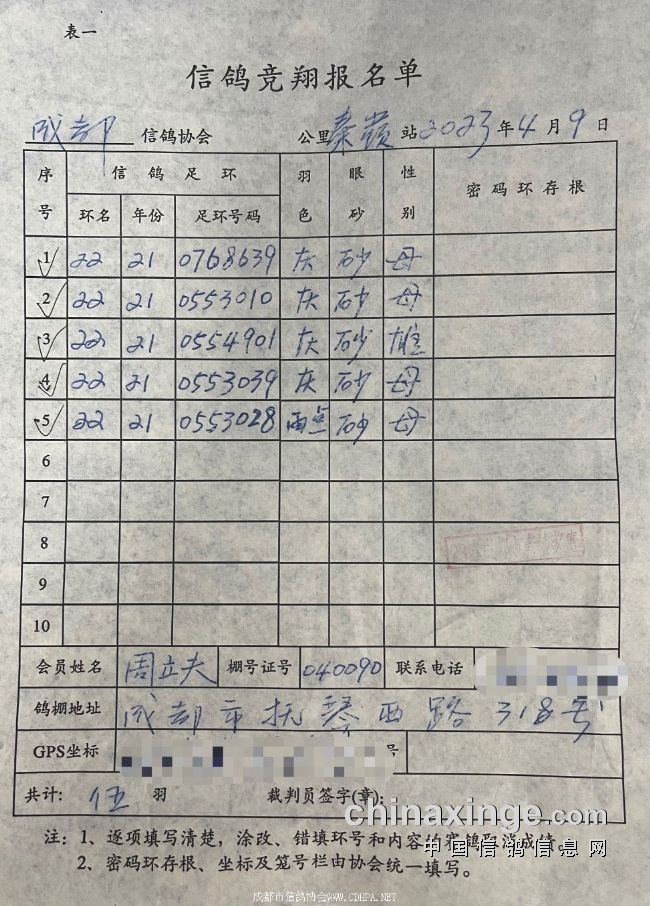 表一
信鸽竞翔报名单
成都 信鸽协会 公里秦岭站2023年4月9日
序号 信鸽足环 羽色 眼砂 性别 密码环存根
环名 年份 足环号码
1 22 21 0768639 灰 砂 母
2 22 21 0553010 灰 砂 母
3 22 21 0554901 灰 砂 雄
4 22 21 0553039 灰 砂 母
5 22 21 0553028 雨点 砂 母
6
7
8
9
10
会员姓名 周立夫 棚号证号 040090 联系电话
鸽棚地址 成都市抚琴西路318号
GPS坐标 号
共计: 伍 羽 裁判员签字(章):
注: 1、逐项填写清楚，涂改、错填环号和内容的赛鸽取消成绩。
2、密码环存根、坐标及笼号栏由协会统一填写。
chinaxinge.com
中国信鸽信息网
成都市信鸽协会WWW.CDHPA.NET